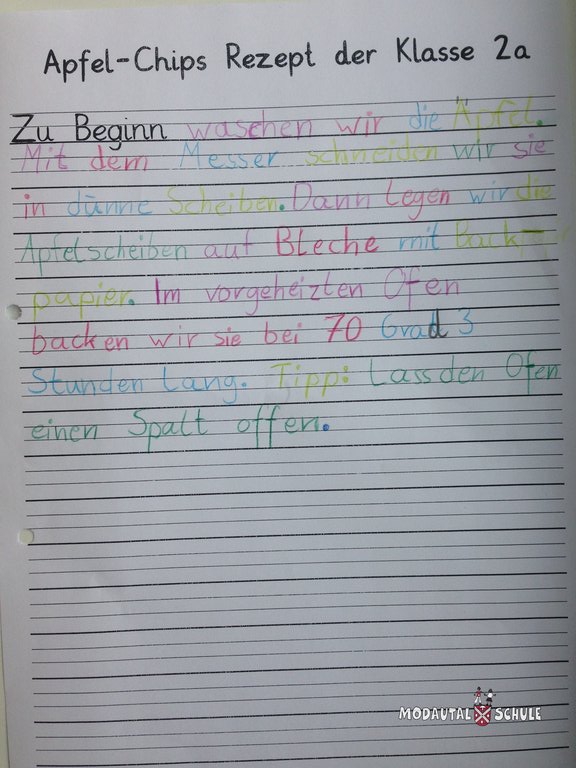 Apfel-Chips Rezept der Klasse 2a
Zu Beginn waschen wir die Äpfel.
Mit dem Messer schneiden wir sie
in dünne Scheiben. Dann legen wir die
Apfelscheiben auf Bleche mit Back-
papier. Im vorgeheizten Ofen
backen wir sie bei 70 Grad 3
Stunden lang. Tipp: Lass den Ofen
einen Spalt offen.
MODAUTAL SCHULE